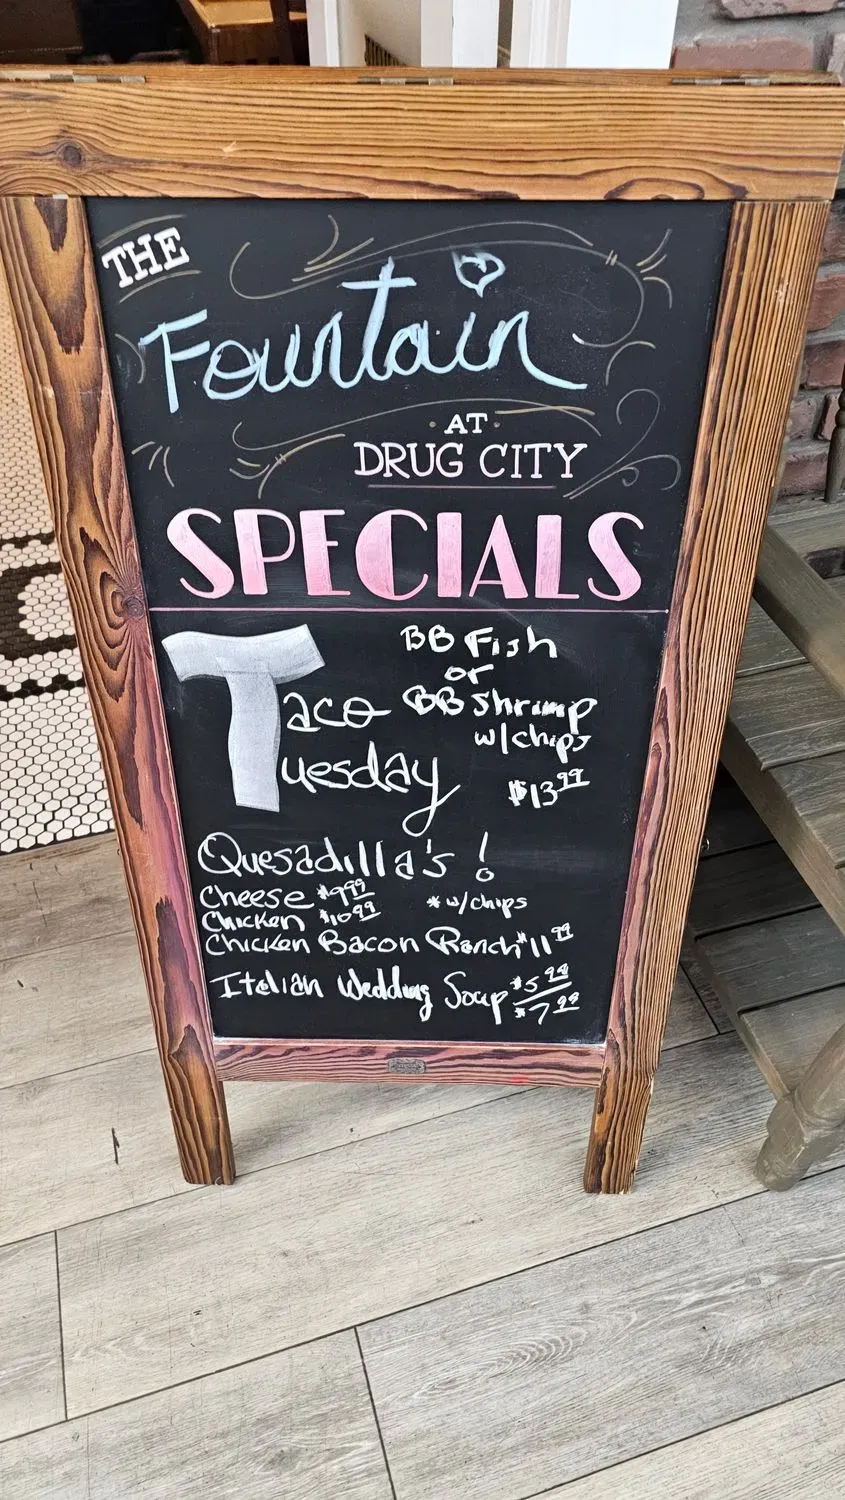 THE
Fountain
AT
DRUG CITY
SPECIALS
Taco
Tuesday
BB Fish
or
BB Shrimp
w/chips
$13.99
Quesadilla's !
Cheese $9.99
Chicken $10.99
* w/chips
Chicken Bacon Ranch $11.99
Italian Wedding Soup $5.99
$7.99